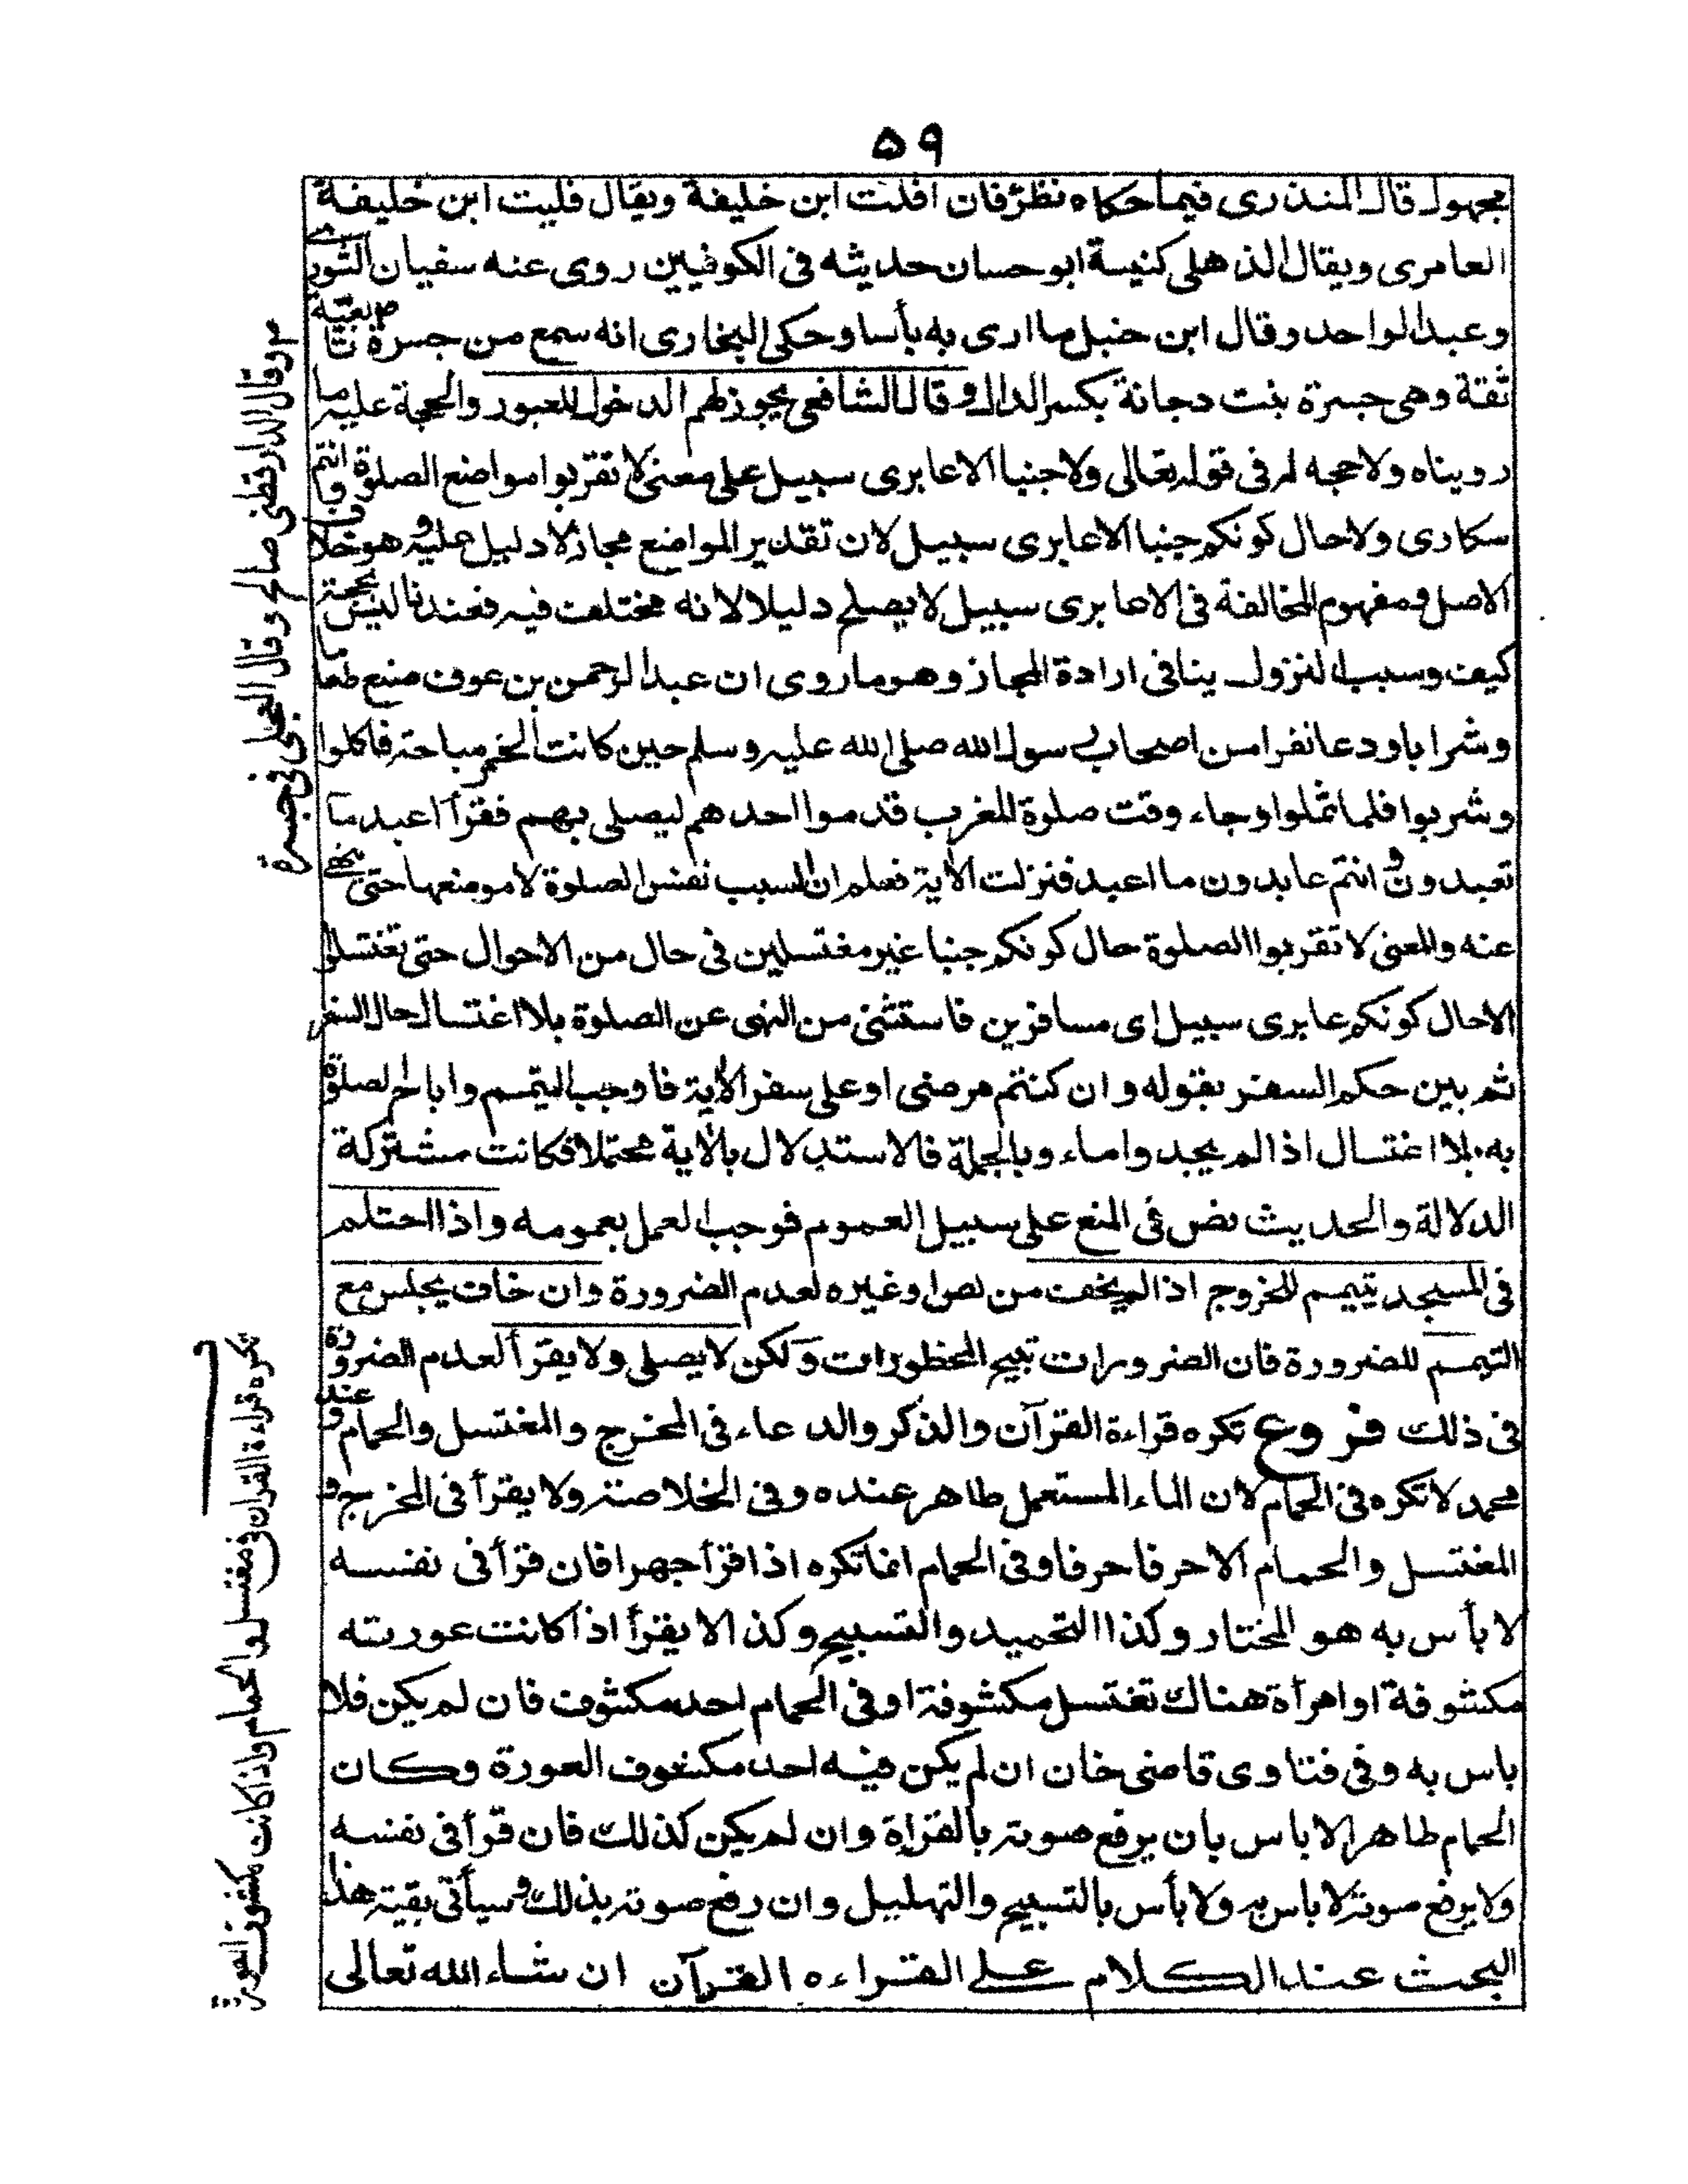 ٥٩
مجهول قال المنذرى فيما حكاه نظر فان افلت ابن خليفة ويقال فليت ابن خليفة
العامرى ويقال الذهلى كنيسة ابو حسان حديثه فى الكوفيين روى عنه سفيان الثورى
وعبد الواحد وقال ابن حنبل ما ارى به بأسا وحكى البخارى انه سمع من جسرة تابعية
ثقة وهى جسرة بنت دجانة بكسر الدال وقال الشافعى يجوز لهم الدخول للعبور والحجة عليه ما
رويناه ولا حجة له فى قوله تعالى ولا جنبا الا عابرى سبيل على معنى لا تقربوا مواضع الصلوة وانتم
سكارى ولا حال كونكم جنبا الا عابرى سبيل لان تقدير المواضع مجاز لا دليل عليه وهو خلاف
الاصل ومفهوم المخالفة فى الا عابرى سبيل لا يصلح دليلا لانه مختلف فيه فعندنا ليس بحجة
كيف وسبب النزول ينافى ارادة المجاز وهو ما روى ان عبد الرحمن بن عوف صنع طعاما
وشرابا ودعا نفرا من اصحاب رسول الله صلى الله عليه وسلم حين كانت الخمر مباحة فاكلوا
وشربوا فلما ثملوا وجاء وقت صلوة المغرب قدموا احدهم ليصلى بهم فقرأ اعبد ما
تعبدون وانتم عابدون ما اعبد فنزلت الاية فعلم ان السبب نفس الصلوة لا موضعها حتى ينهى
عنه والمعنى لا تقربوا الصلوة حال كونكم جنبا غير مغتسلين فى حال من الاحوال حتى تغتسلوا
الا حال كونكم عابرى سبيل اى مسافرين فاستثنى من النهى عن الصلوة بلا اغتسال حال السفر
ثم بين حكم السفر بقوله وان كنتم مرضى او على سفر الاية فاوجب التيمم واباح الصلوة
به بلا اغتسال اذا لم يجدوا ماء وبالجملة فالاستدلال بالاية محتملا فكانت مشتركة
الدلالة والحديث نص فى المنع على سبيل العموم فوجب العمل بعمومه واذا احتلم
فى المسجد تيمم للخروج اذا لم يخف من لص او غيره لعدم الضرورة وان خاف يجلس مع
التيمم للضرورة فان الضرورات تبيح المحظورات ولكن لا يصلى ولا يقرأ لعدم الضرورة
فى ذلك فروع تكره قراءة القرآن والذكر والدعاء فى المخرج والمغتسل والحمام وعند
محمد لا تكره فى الحمام لان الماء المستعمل طاهر عنده وفى الخلاصة ولا يقرأ فى المخرج و
المغتسل والحمام الا حرفا حرفا وفى الحمام انما تكره اذا اقرأ جهرا فان قرأ فى نفسه
لا بأس به هو المختار وكذا التحميد والتسبيح وكذا لا يقرأ اذا كانت عورته
مكشوفة او امرأة هناك تغتسل مكشوفة او فى الحمام احد مكشوف فان لم يكن فلا
باس به وفى فتاوى قاضى خان ان لم يكن فيه احد مكشوف العورة وكان
الحمام طاهرا لا باس بان يرفع صوته بالقراة وان لم يكن كذلك فان قرأ فى نفسه
ولا يرفع صوته لا باس به ولا بأس بالتسبيح والتهليل وان رفع صوته بذلك وسيأتى بقية هذا
البحث عند الكلام على القراءه القرآن ان شاء الله تعالى
وقال الدارقطنى صالح وقال العجلى فى جسرة
تكره قراءة القران فى مغتسل والحمام واذا كانت مكشوفة العورة